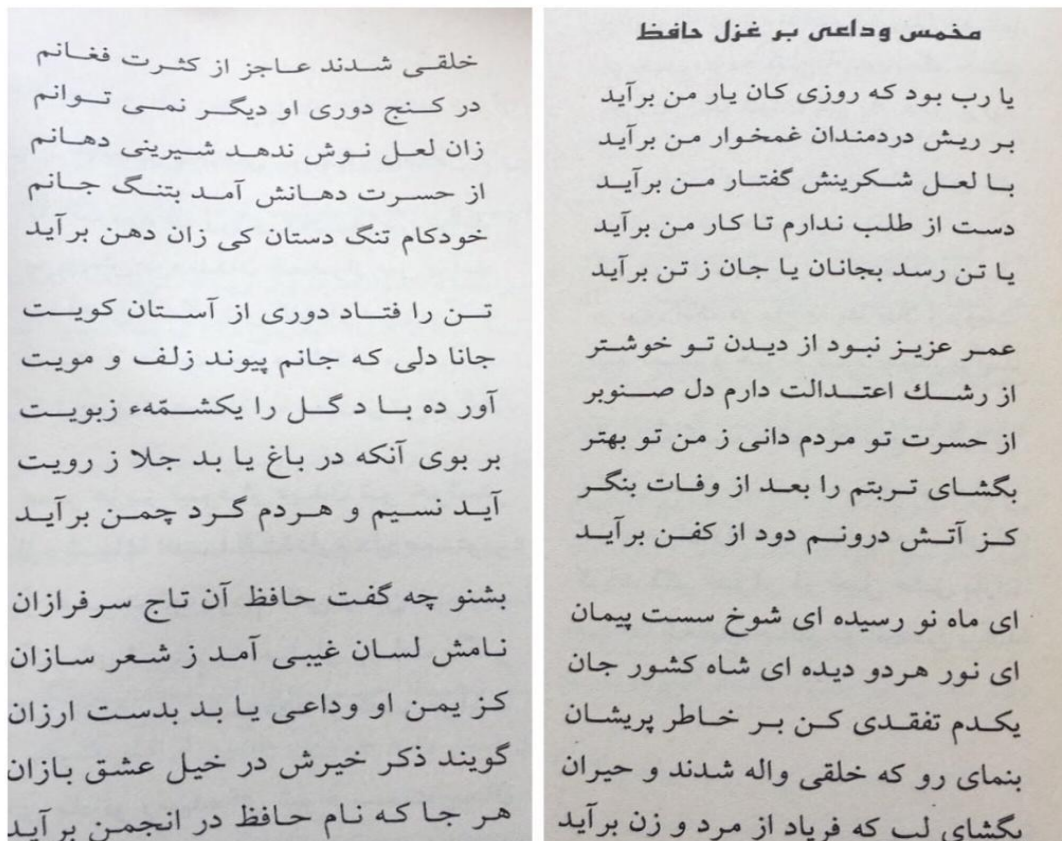 مخمس وداعی بر غزل حافظ
یا رب بود که روزی کان یار من برآید
بر ریش دردمندان غمخوار من برآید
با لعل شکرینش گفتار من برآید
دست از طلب ندارم تا کار من برآید
یا تن رسد بجانان یا جان ز تن برآید
عمر عزیز نبود از دیدن تو خوشتر
از رشك اعتدالت دارم دل صنوبر
از حسرت تو مردم دانی ز من تو بهتر
بگشای تربتم را بعد از وفات بنگر
کز آتش درونم دود از کفن برآید
ای ماه نو رسیده ای شوخ سست پیمان
ای نور هردو دیده ای شاه کشور جان
یکدم تفقدی کن بر خاطر پریشان
بنمای رو که خلقی واله شدند و حیران
بگشای لب که فریاد از مرد و زن برآید
خلقی شدند عاجز از کثرت فغانم
در کنج دوری او دیگر نمی توانم
زان لعل نوش ندهد شیرینی دهانم
از حسرت دهانش آمد بتنگ جانم
خودکام تنگ دستان کی زان دهن برآید
تن را فتاد دوری از آستان کویت
جانا دلی که جانم پیوند زلف و مویت
آور ده با د گل را یکشمّهء زبویت
بر بوی آنکه در باغ یا بد جلا ز رویت
آید نسیم و هردم گرد چمن برآید
بشنو چه گفت حافظ آن تاج سرفرازان
نامش لسان غیبی آمد ز شعر سازان
کز یمن او وداعی یا بد بدست ارزان
گویند ذکر خیرش در خیل عشق بازان
هر جا که نام حافظ در انجمن برآید